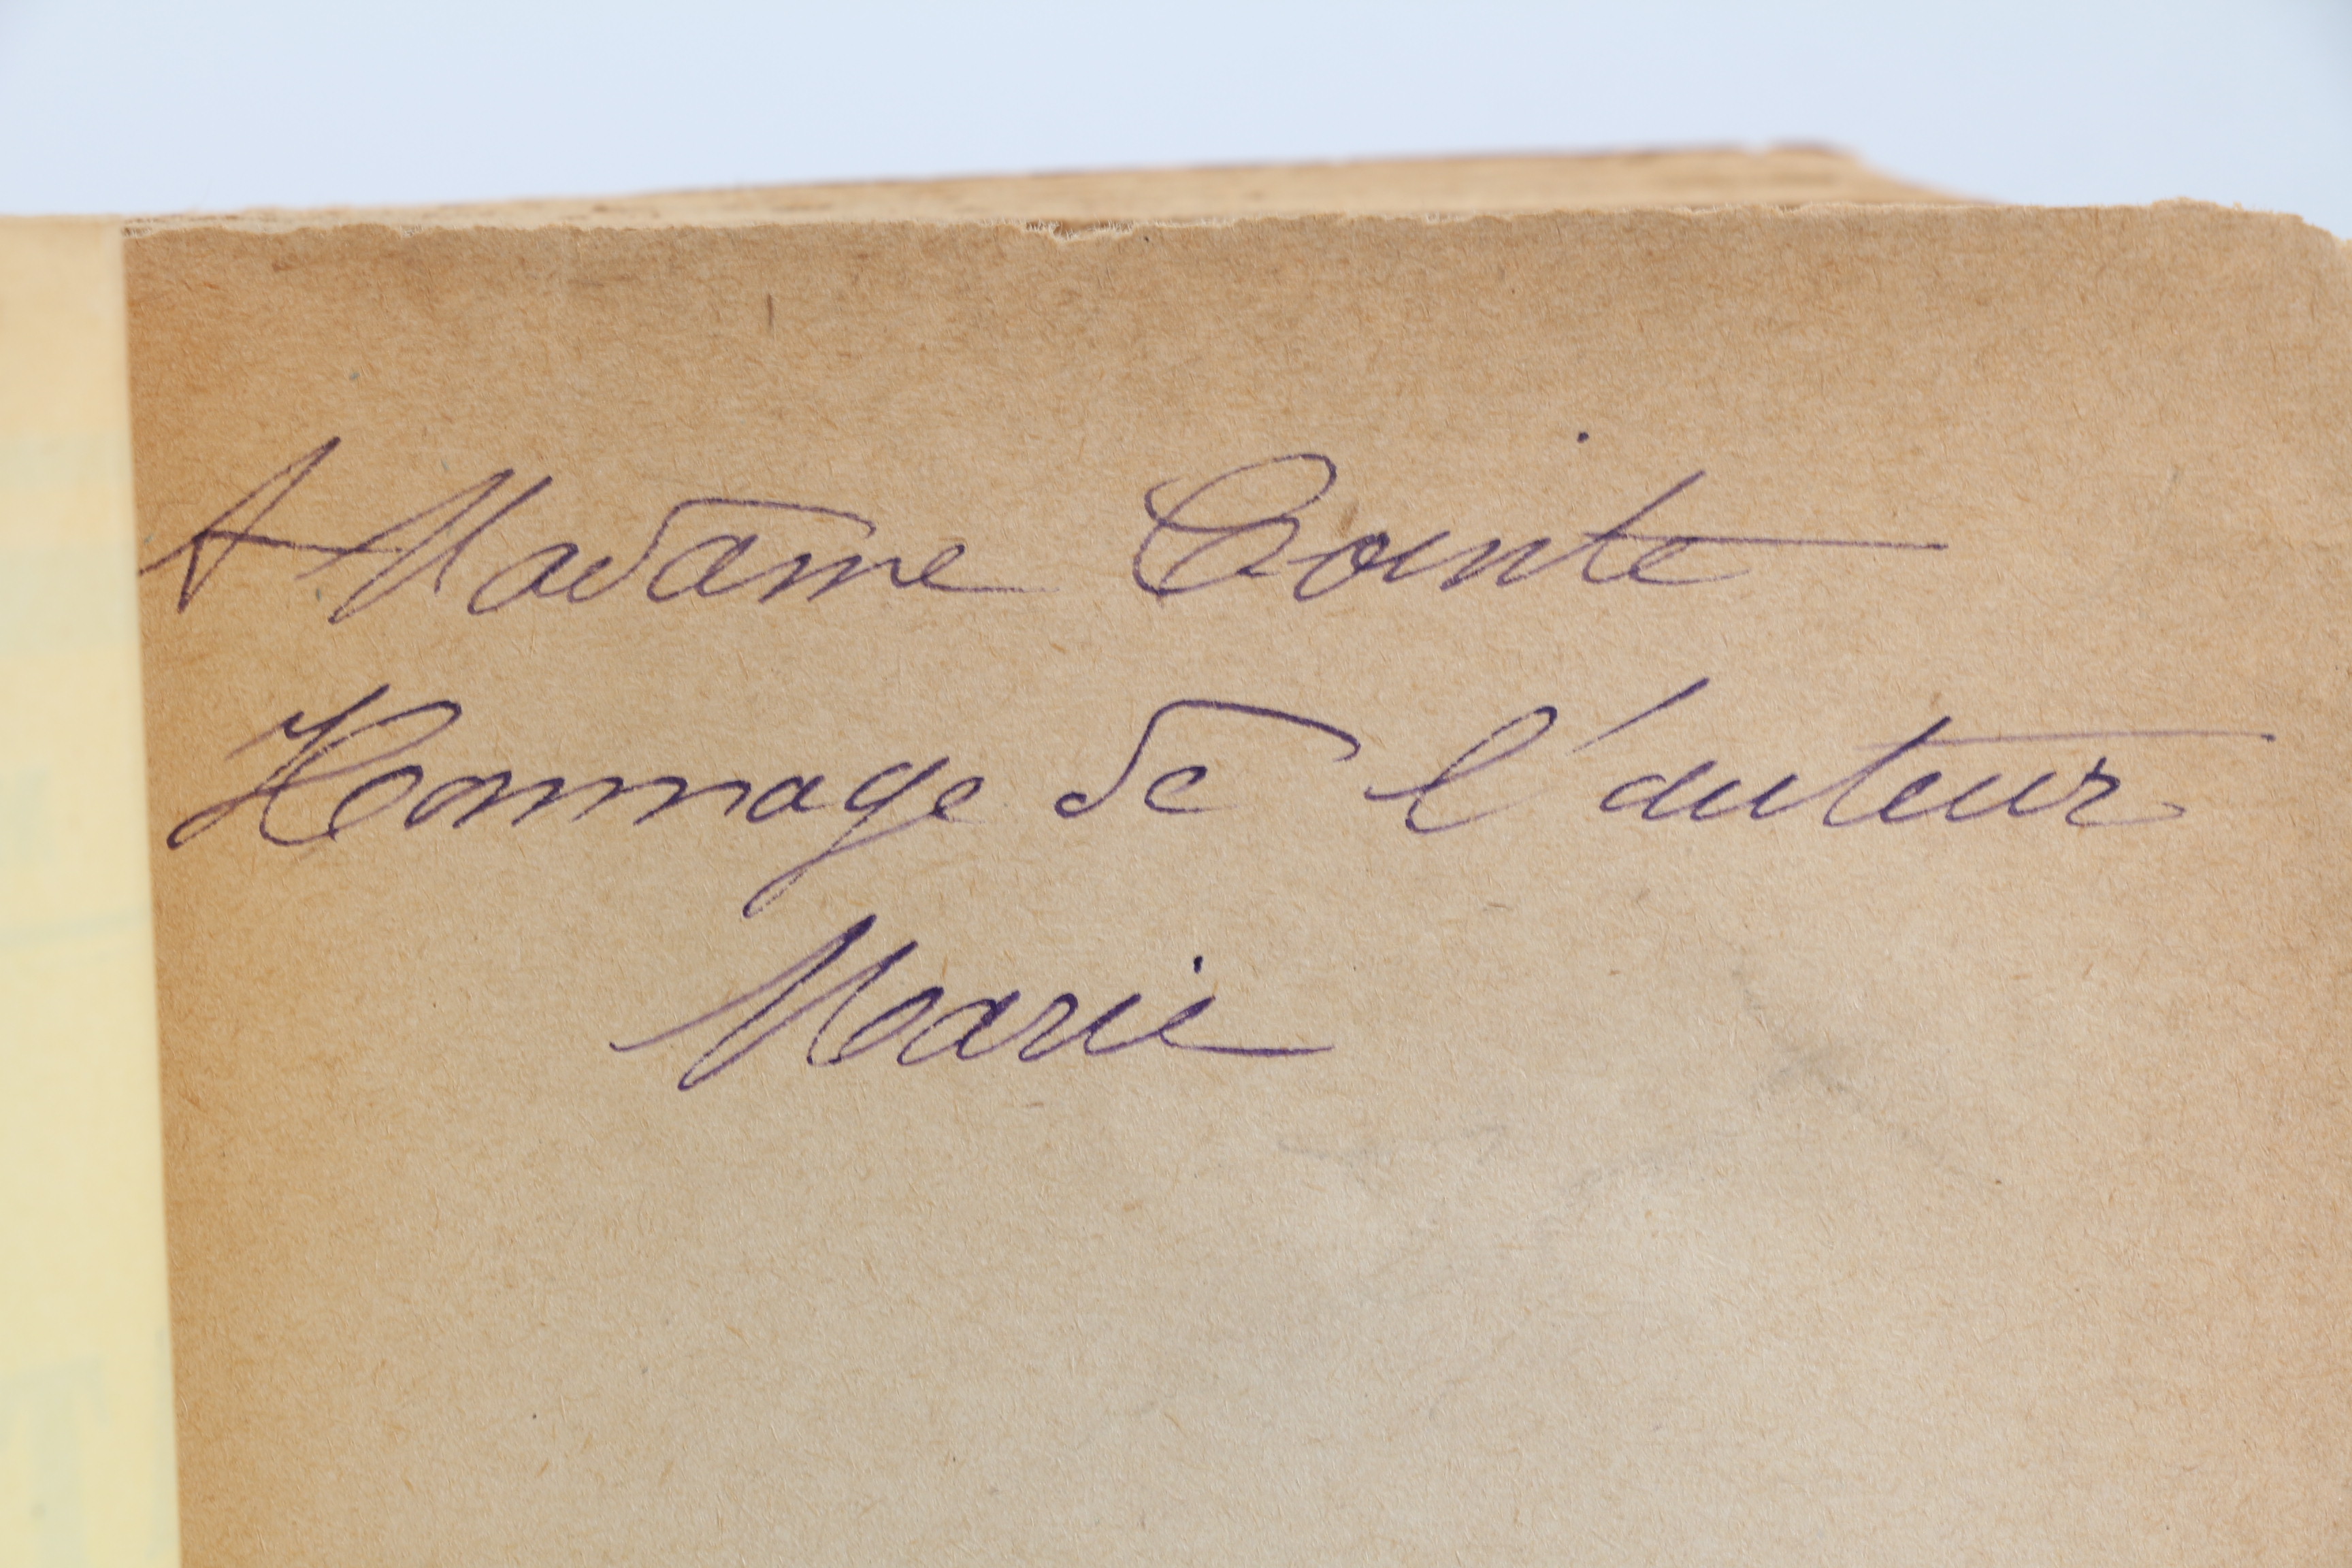 A Madame Cointe
Hommage de l'auteur
Marie